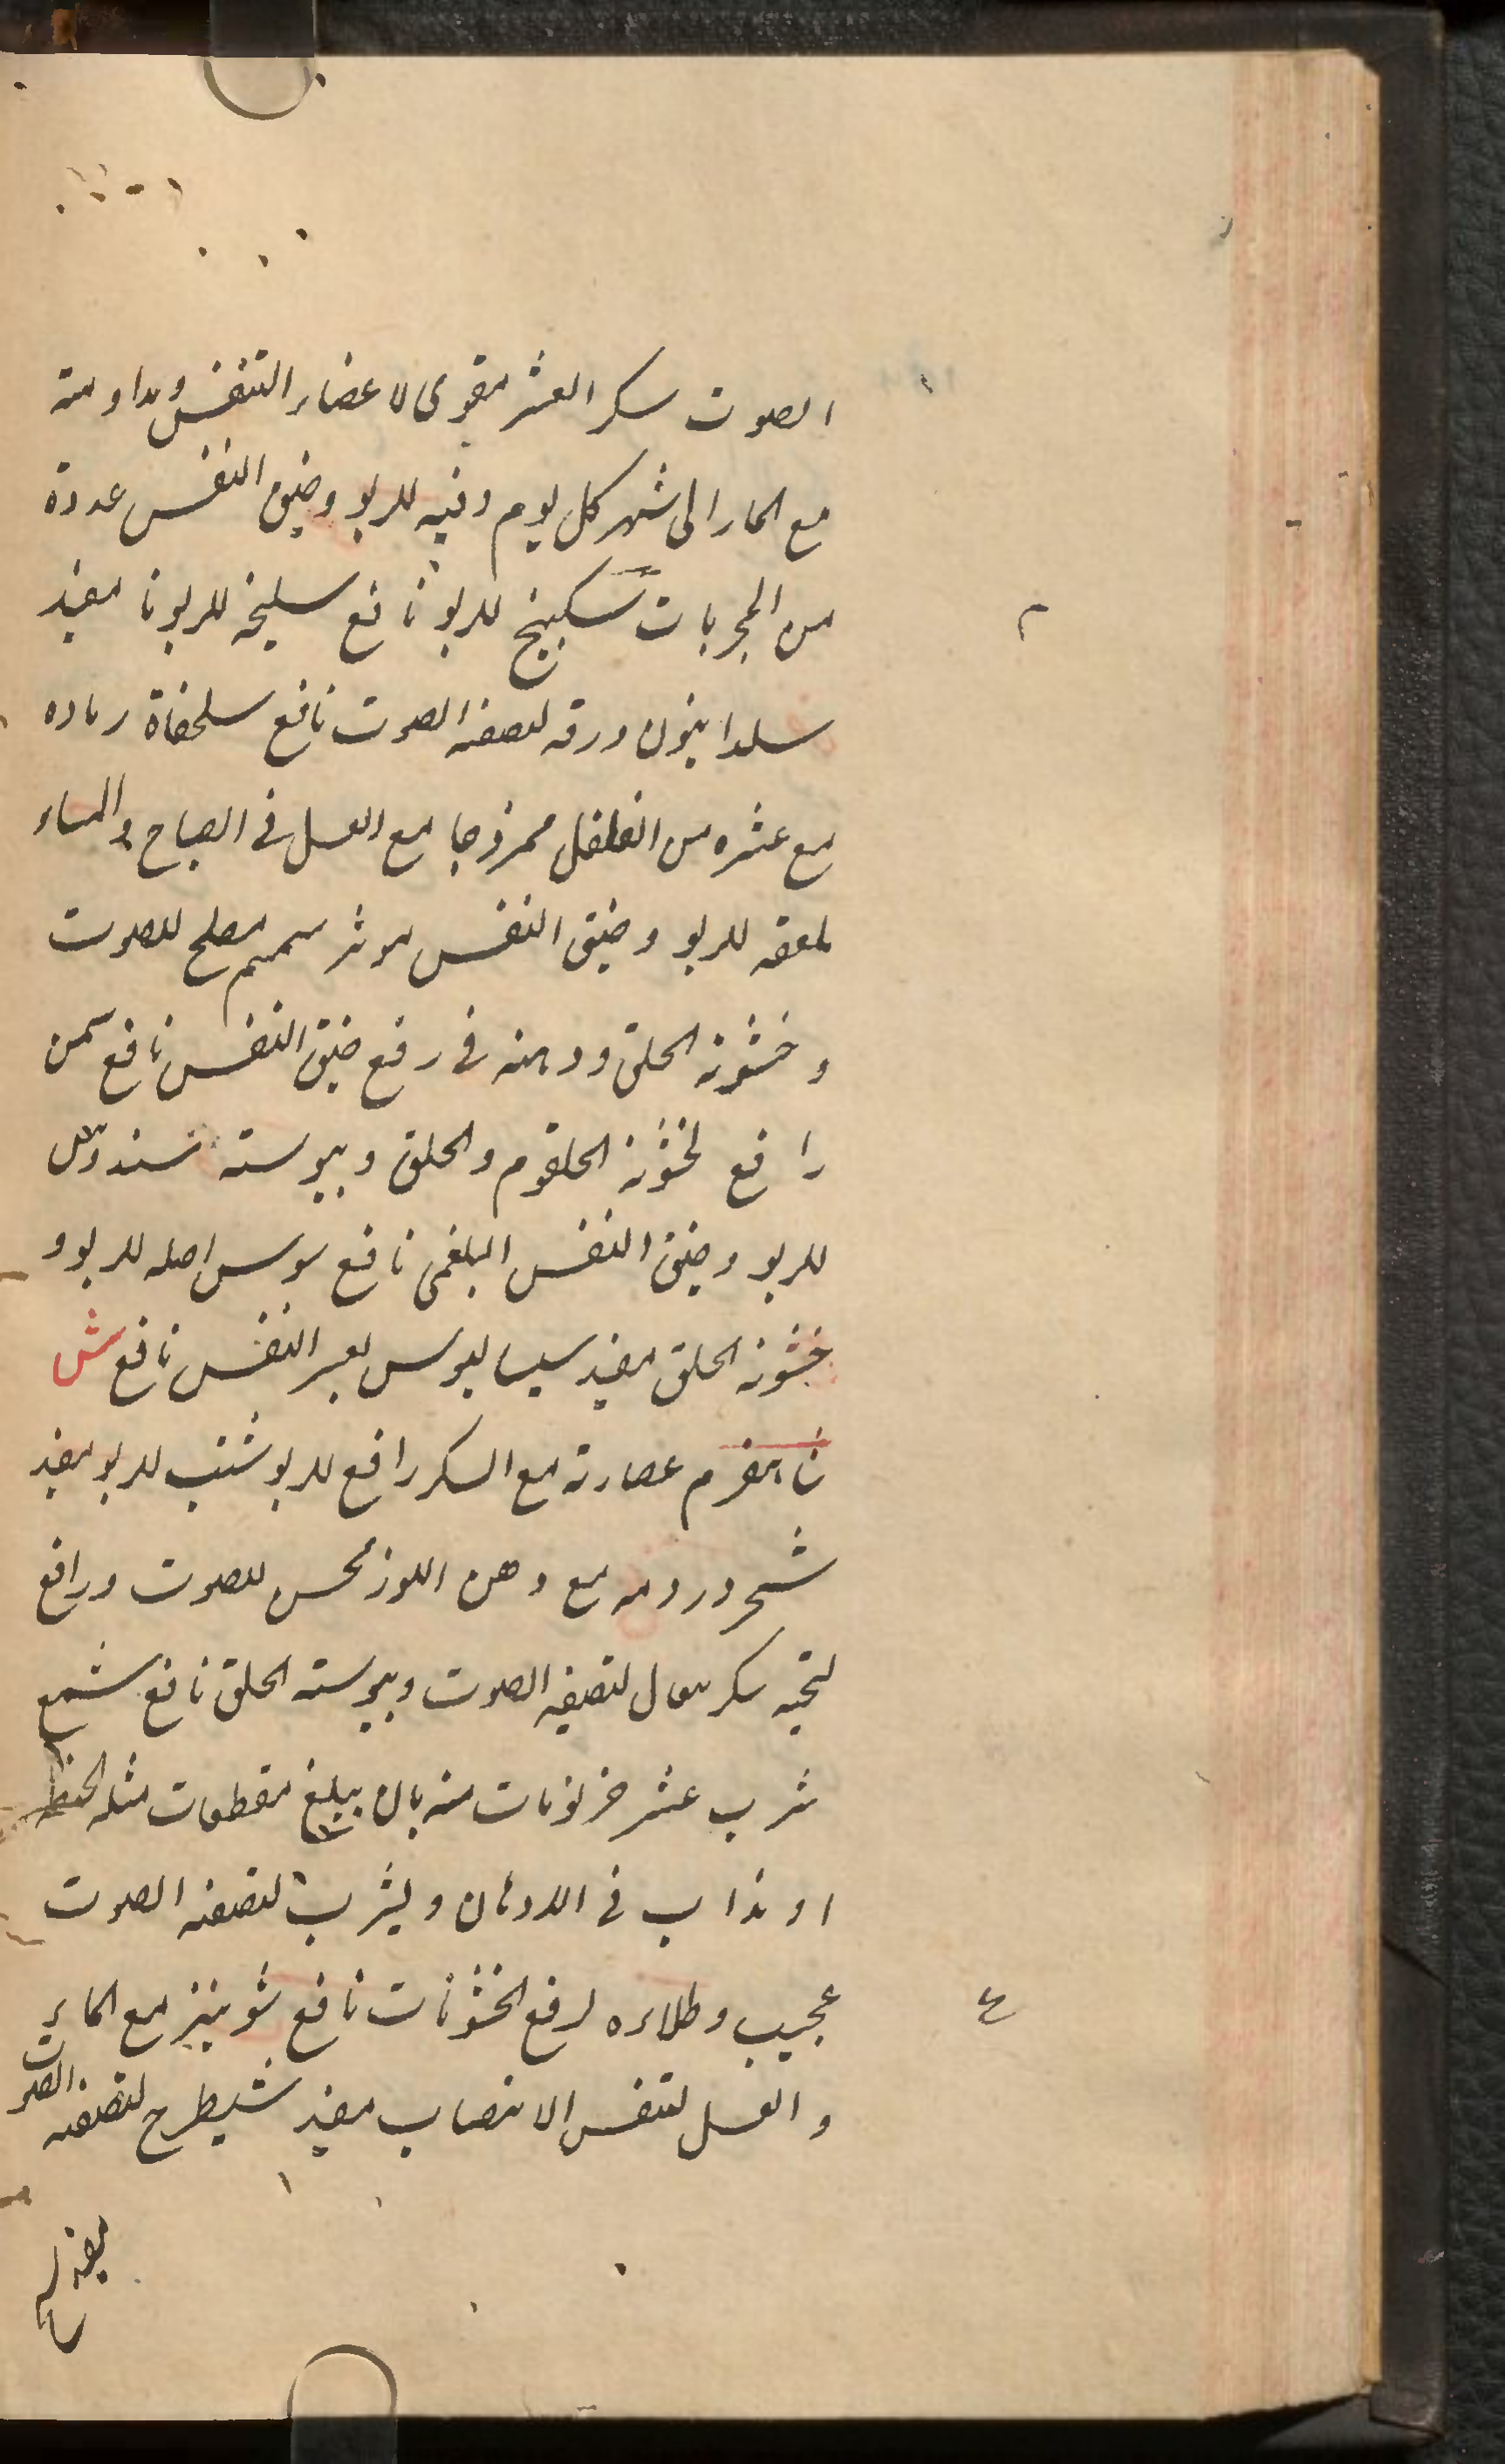 الصوت سكر العشر مقوى لاعضاء التنفس ومداومته
مع الحار الى شهر كل يوم وقيه للربو وضيق النفس عدوة
من المجربات سكبينج للربو نافع سليخه للربو نا مفيد
ورقه لتصفيه الصوت نافع سلحفاة رماده
مع عشره من الفلفل ممزوجا مع العسل في الصباح والمساء
لعقه للربو وضيق النفس موثر سمسم مصلح للصوت
وخشونة الحلق ودهنه في رفع ضيق النفس نافع سمن
رافع لخشونة الحلقوم والحلق ويبوسته
للربو وضيق النفس البلغمى نافع سوس اصله للربو و
خشونة الحلق مفيد سيساليوس لعسر النفس نافع ش
شاهسفرم عصارته مع السكر رافع للربو شنب للربو مفيد
مع دهن اللوز محسن للصوت ورافع
لبحته لتصفيه الصوت ويبوسته الحلق نافع شمع
شرب عشر منه بان يبلغ مقطعات مثله الحنطه
او يذاب في الادهان ويشرب لتصفيه الصوت
عجيب وطلاءه لرفع الخشونات نافع شونيز مع الماء
والعسل لتنفس الانتصاب مفيد شيطرج لتصفيه الصوت